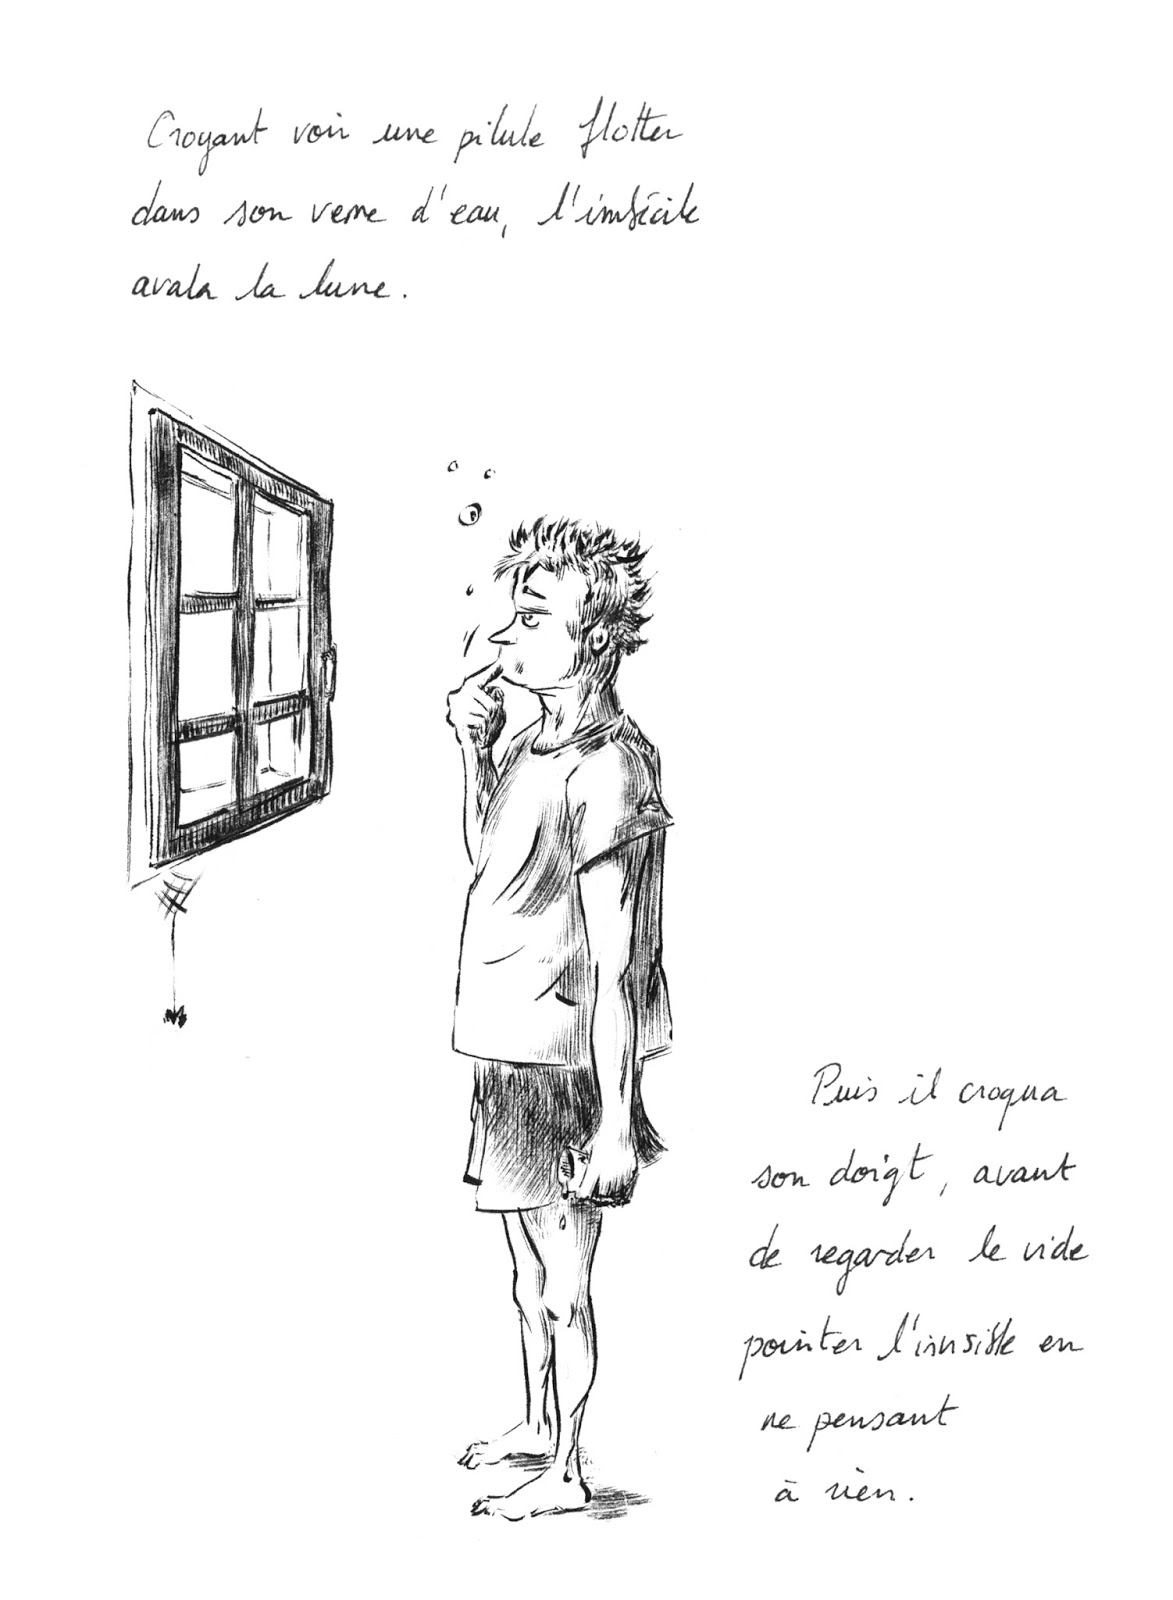 Croyant voir une pilule flotter
dans son verre d'eau, l'imbécile
avala la lune.
Puis il croqua
son doigt, avant
de regarder le vide
pointer l'invisible en
ne pensant
à rien.